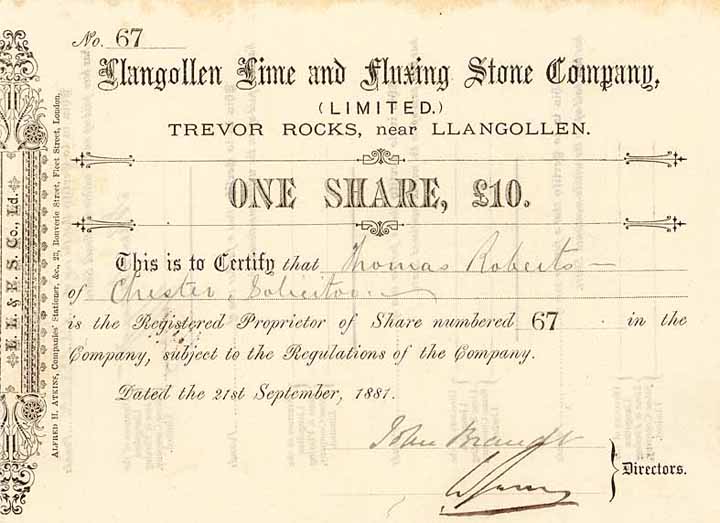 No. 67
Llangollen Lime and Fluxing Stone Company,
(LIMITED.)
TREVOR ROCKS, near LLANGOLLEN.
ONE SHARE, £10.
This is to Certify that Thomas Roberts
of Chester, Solicitor
is the Registered Proprietor of Share numbered 67 in the
Company, subject to the Regulations of the Company.
Dated the 21st September, 1881.
John Brandt
Directors.
L. L. & F. S. Co., Ld.
ALFRED H. ATKINS, Companies' Stationer, &c., 23, Bouverie Street, Fleet Street, London.